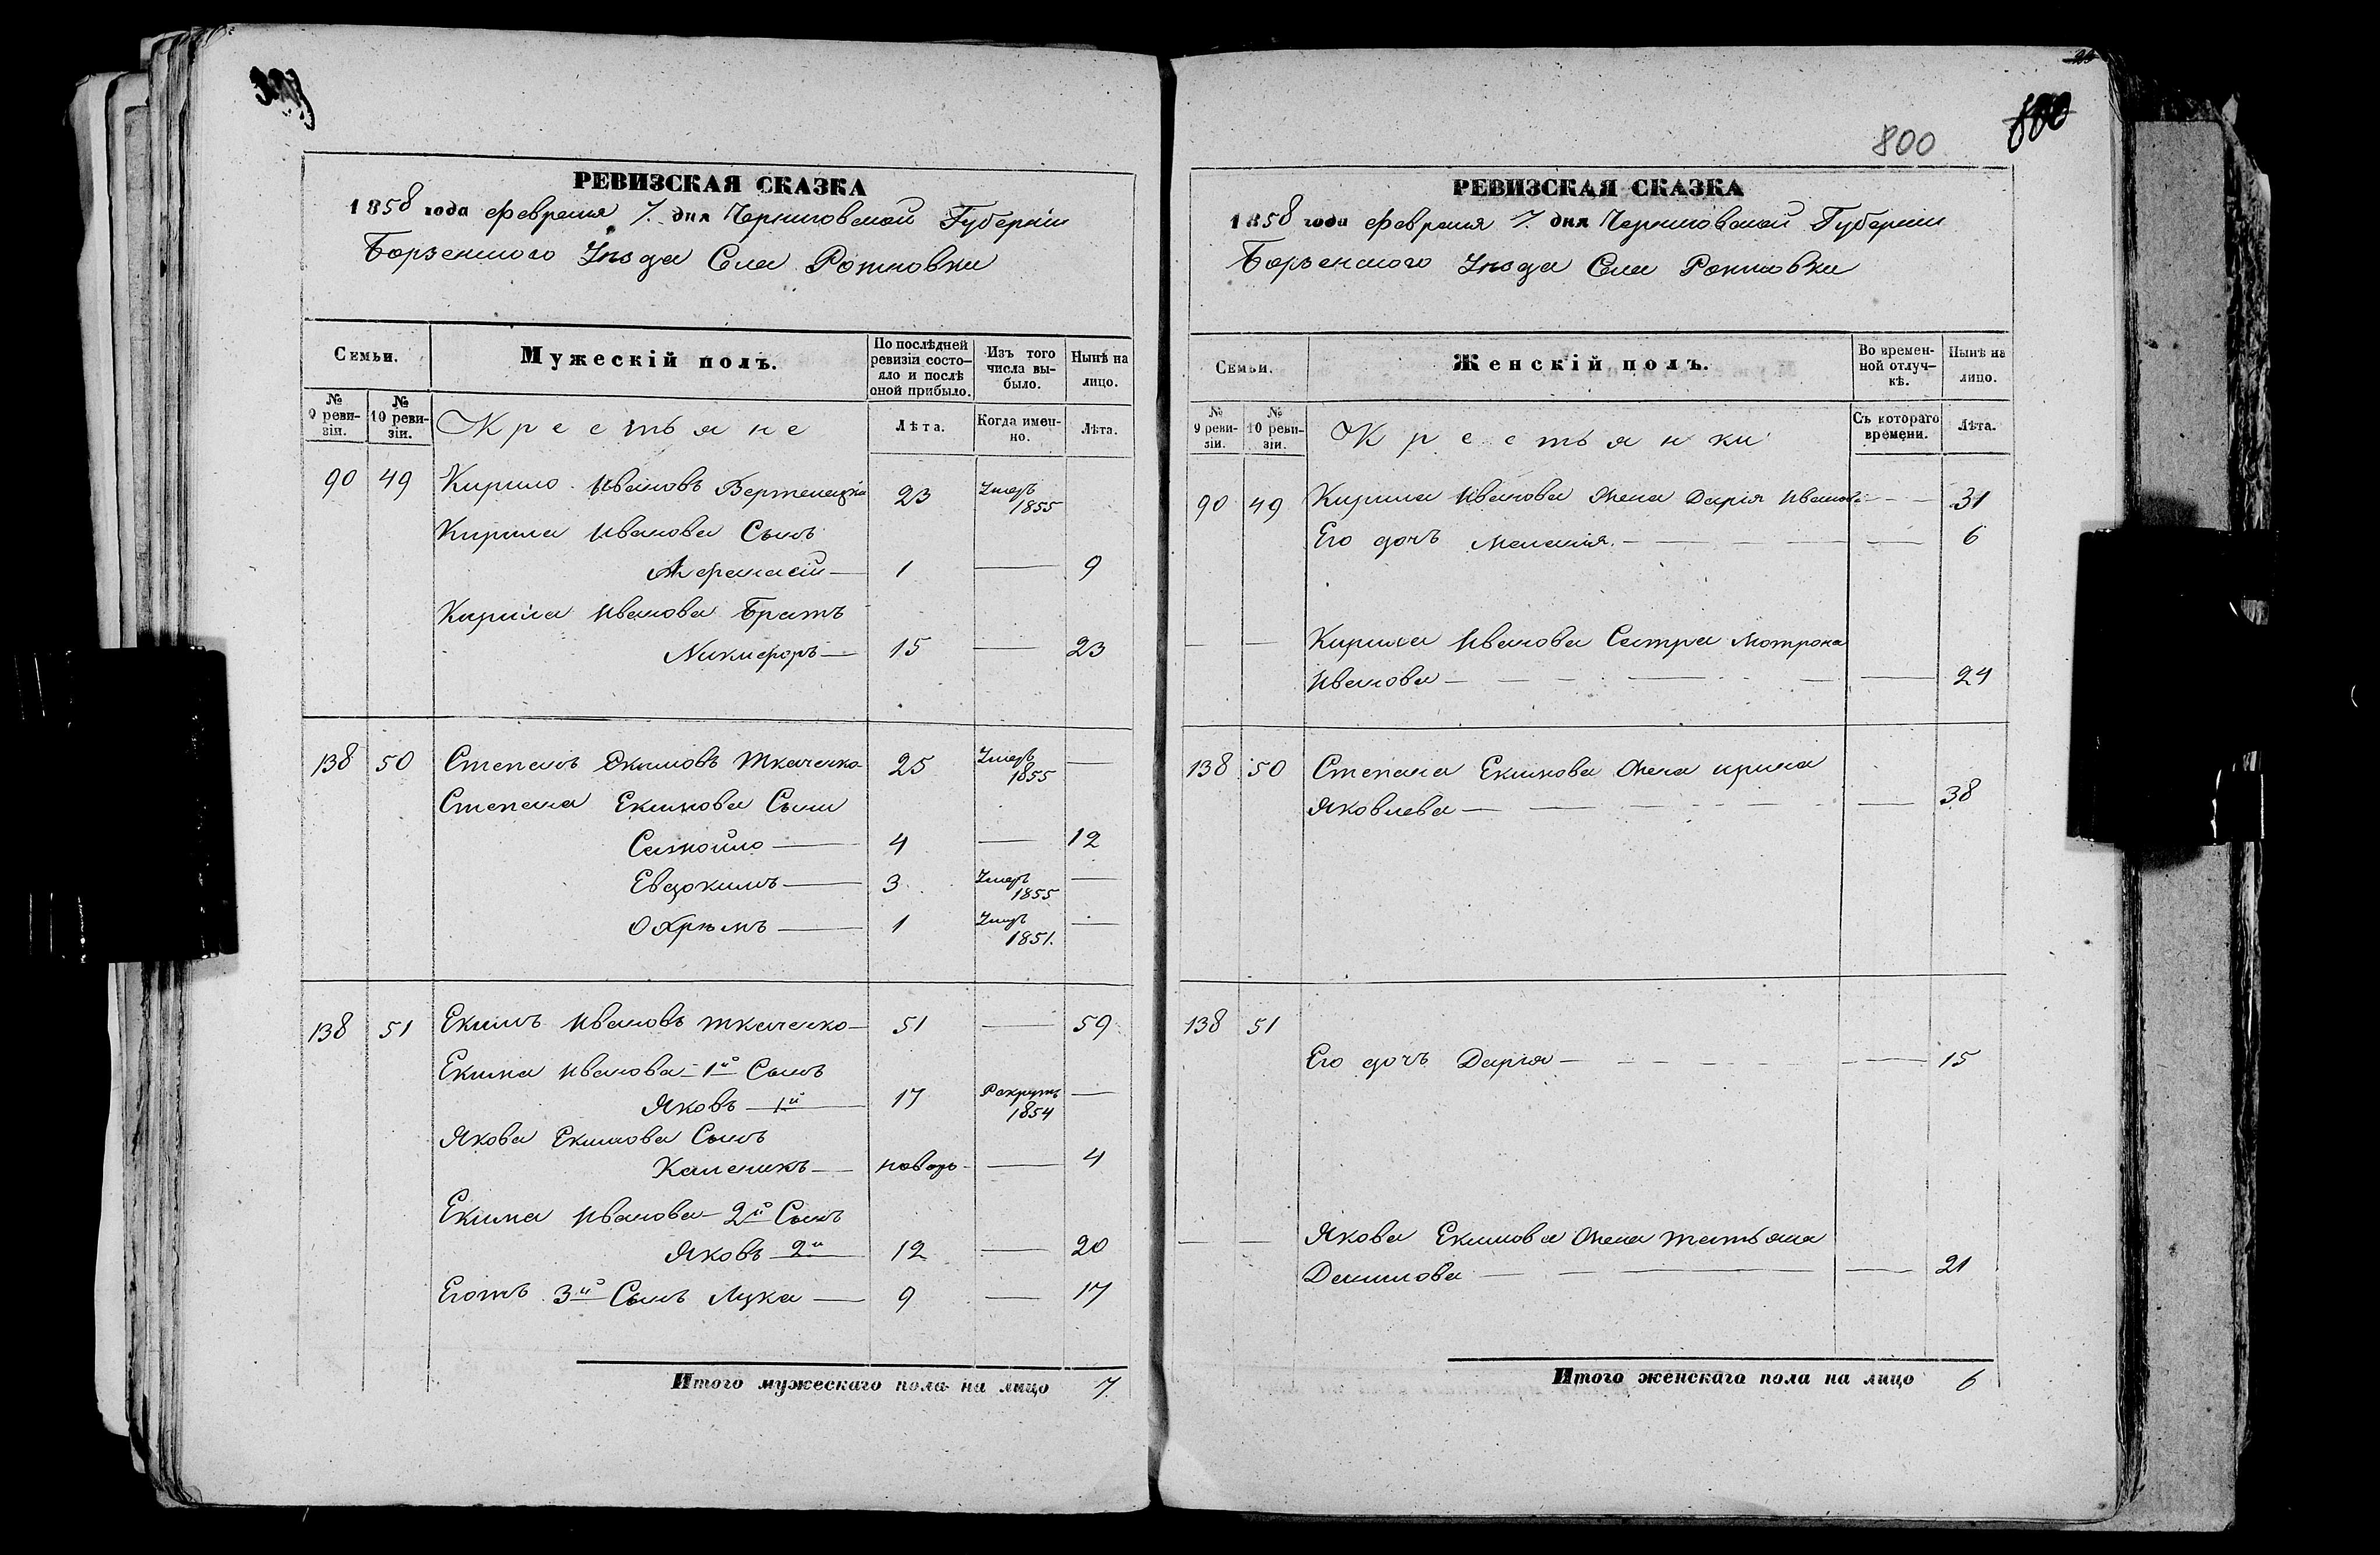 800
800
РЕВИЗСКАЯ СКАЗКА
1858 года февраля 7. дня Черниговской Губерніи
Борзенского Уѣзда Села
Семьи.
Мужескій полъ.
По послѣдней ревизіи состо-
яло и послѣ
оной прибыло.
Изъ того
числа вы-
было.
Нынѣ на
лицо.
№
9 реви-
зіи.
№
10 реви-
зіи.
Крестьяне
Лѣта.
Когда имен-
но.
Лѣта.
90 49 Кирило Ивановъ 23 Умеръ
1855
Кирила Иванова Сынъ
Афанасій — 1 — 9
Кирила Иванова Братъ
Никифоръ — 15 — 23
138 50 Степанъ Екимовъ Ткаченко 25 Умеръ —
1855
Степана Екимова Сыни
Самойло — 4 — 12
Евдокимъ — 3 Умеръ —
1855
Охрѣмъ — 1 Умеръ —
1851.
138 51 Екимъ Ивановъ Ткаченко — 51 — 59
Екима Иванова 1й Сынъ
Яковъ 1й 17 Рекрутъ —
1854
Якова Екимова Сынъ
Каленикъ — новор. — 4
Екима Иванова 2й Сынъ
Яковъ 2й 12 — 20
Егожъ 3й Сынъ Лука — 9 — 17
Итого мужескаго пола на лицо 7
РЕВИЗСКАЯ СКАЗКА
1858 года февраля 7. дня Черниговской Губерніи
Борзенского Уѣзда Села
Семьи.
Женскій полъ.
Во времен-
ной отлуч-
кѣ.
Нынѣ на
лицо.
№
9 реви-
зіи.
№
10 реви-
зіи.
Крестьянки
Съ котораго
времени.
Лѣта.
90 49 Кирила Иванова Жена Дарія Иванова — 31
Его дочь Меланія — — 6
— — Кирила Иванова Сестра Мотрона
Иванова — — 24
138 50 Степана Екимова Жена Ирина
Яковлева — — 38
138 51
Его дочь Дарія — — 15
— — Якова Екимова Жена Татьяна
Данилова — — 21
Итого женскаго пола на лицо 6